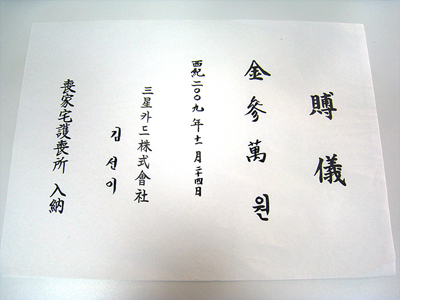 賻儀
金參萬원
西紀二○○九年十一月二十四日
三星카드株式會社
김선이
喪家宅護喪所 入納